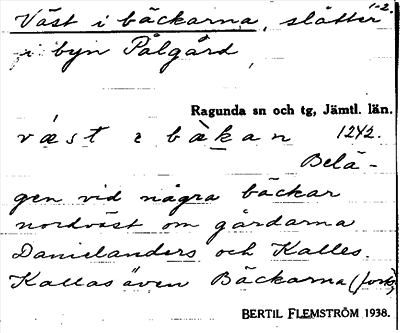 Väst i bäckarna, slåtter 1-2.
i byn Pålgård,
Ragunda sn och tg, Jämtl. län.
væst i bækan 1242.
Belä-
gen vid några bäckar
nordväst om gårdarna
Danielanders och Kalles.
Kallas även Bäckarna (fork.)
BERTIL FLEMSTRÖM 1938.